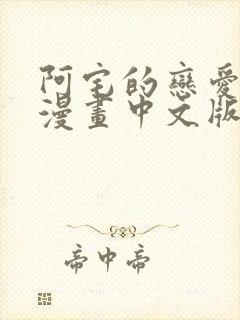 阿宅的戀愛
漫畫中文版
帝中帝